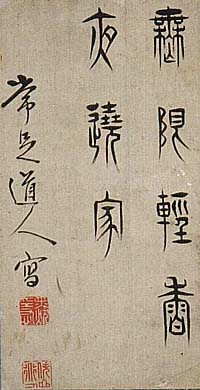 無限輕香
夜遶家
常足道人寫